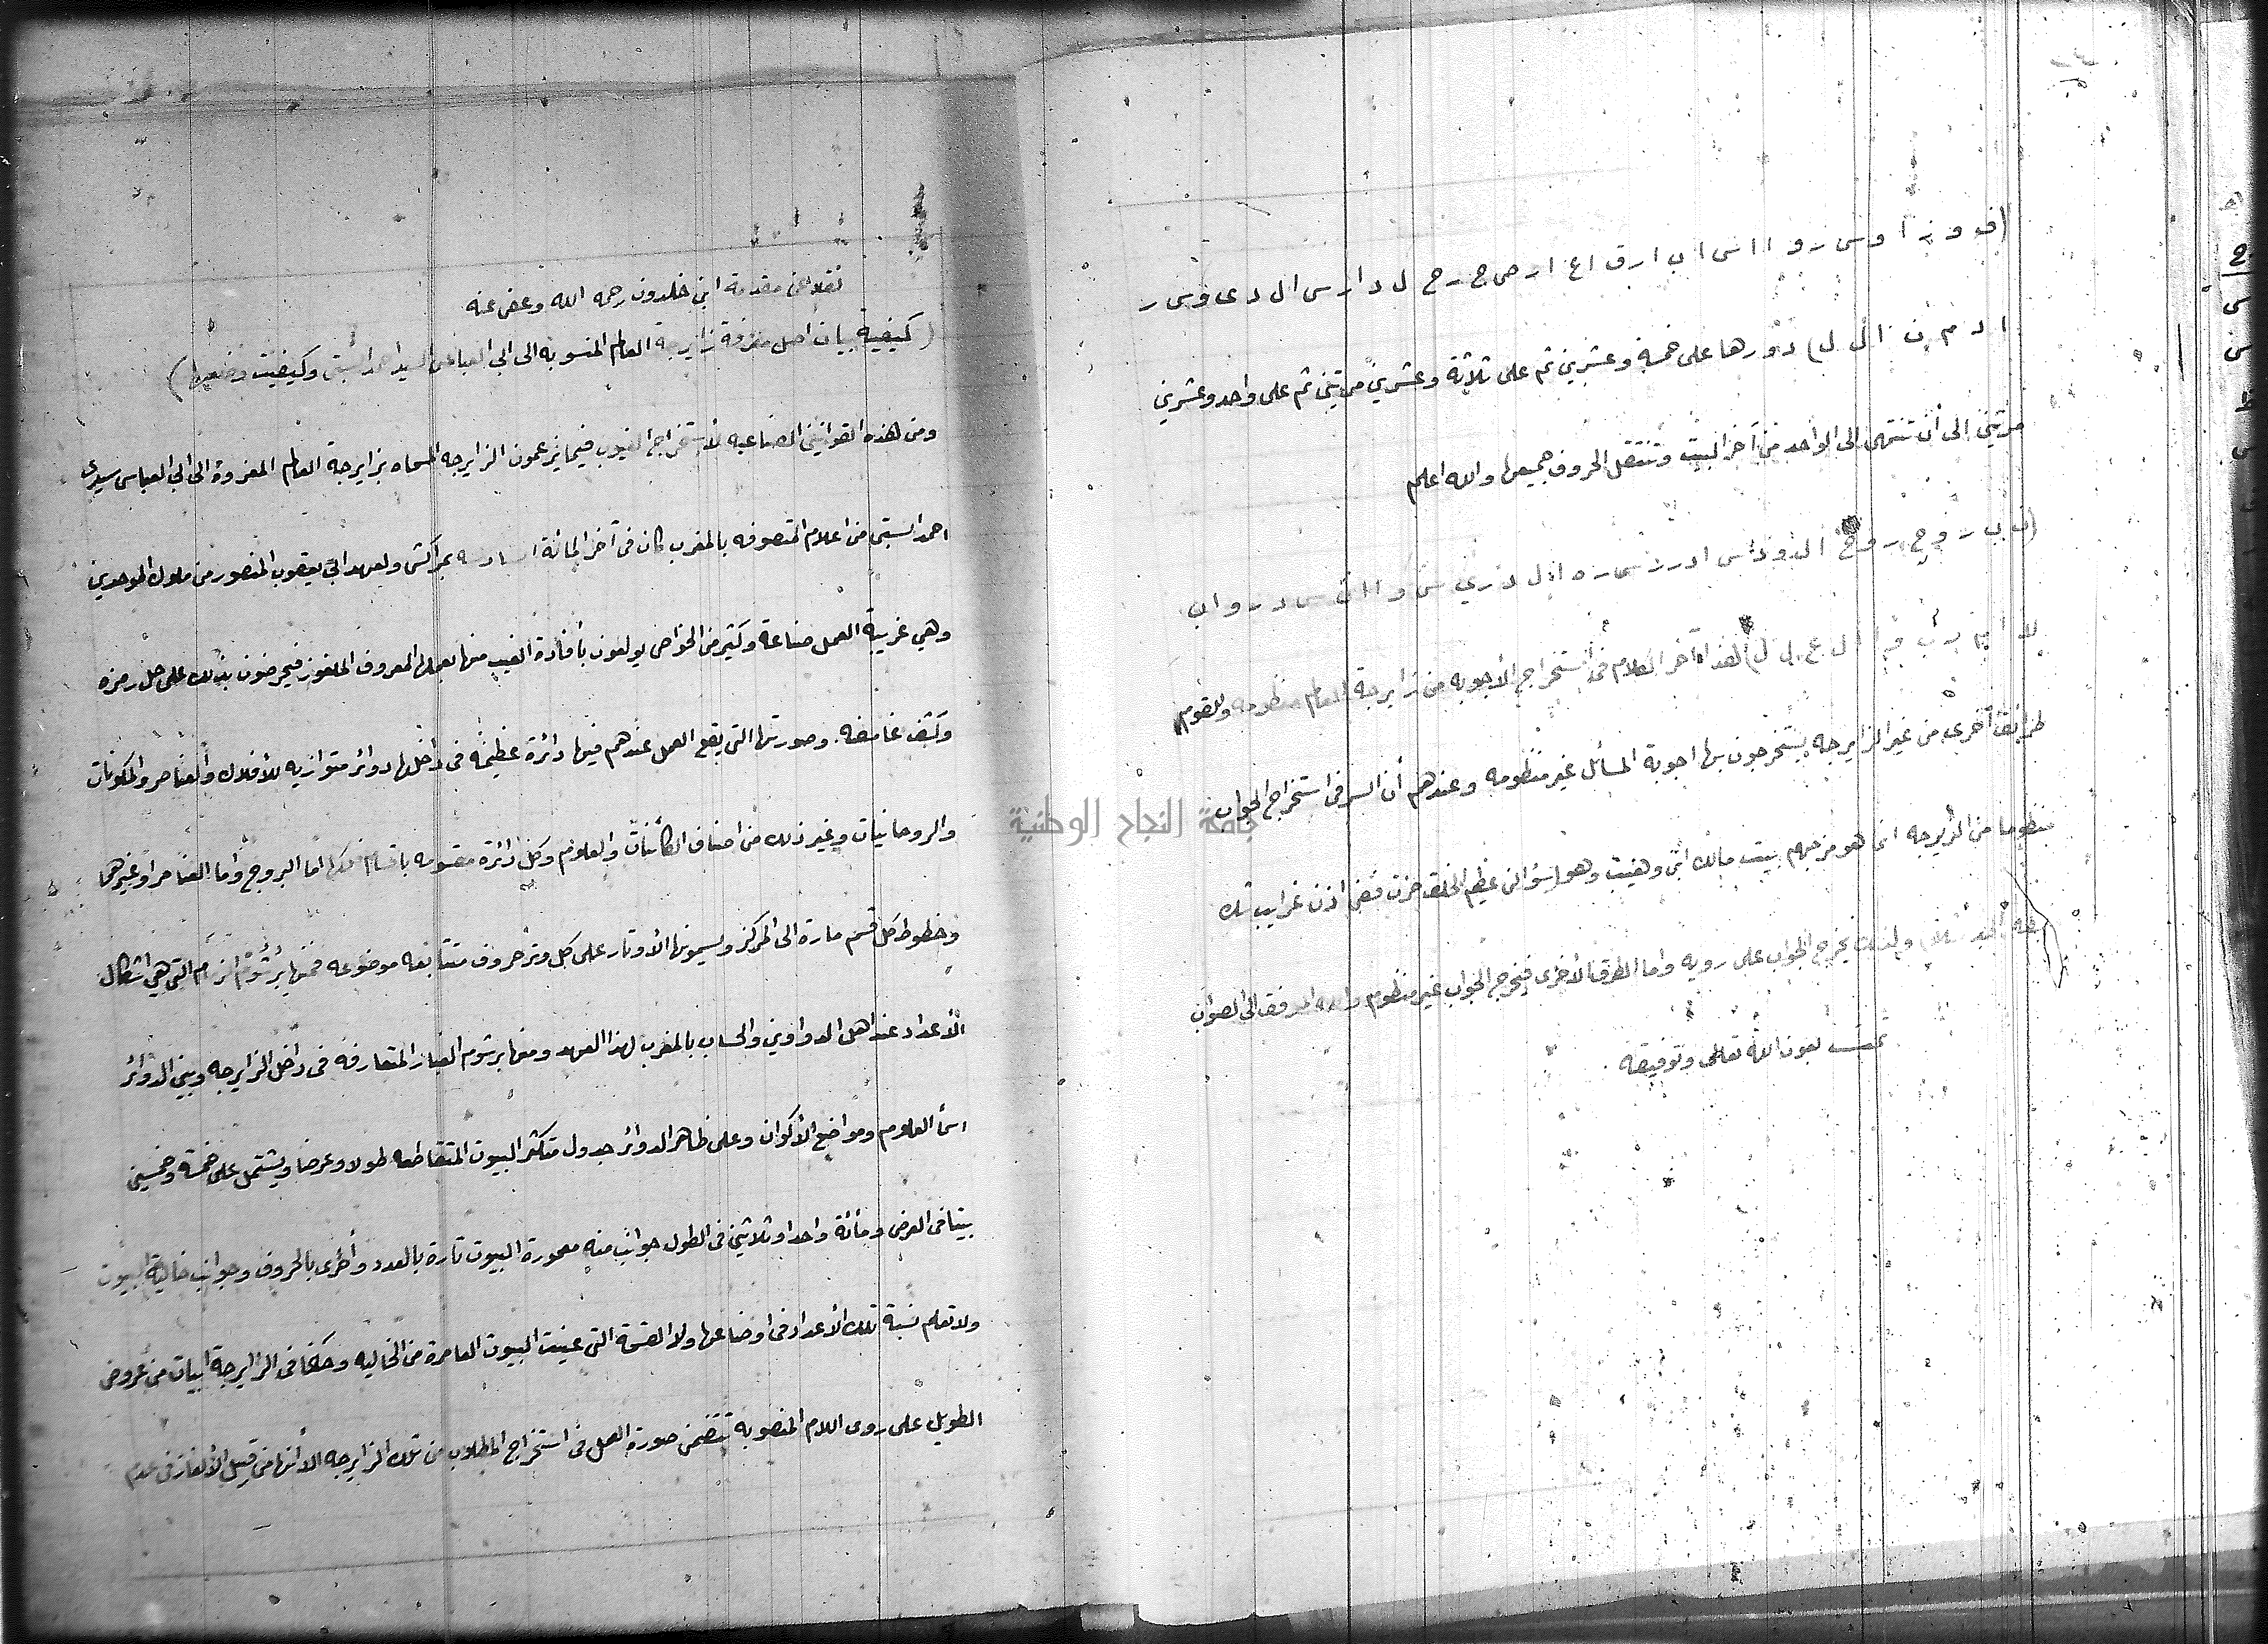 (ف و ز ا و س ر و ا ا س ا ب ا ر ق ا ع ا ر ص ح ر ح ل د ا ر س ا ل د ى و س ر
ا د م ن ا ل ل) دورها على خمسة وعشرين ثم على ثلاثة وعشرين مرتين ثم على واحد وعشرين
مرتين الى أن تنتهى الى الواحد من آخر البيت وتنتقل الحروف جميعها والله اعلم
هذا آخر الكلام فى استخراج الأجوبه من زايرجة العالم منظومه وللقوم
طرائق أخرى من غير الزايرجه يستخرجون بها اجوبة المسائل غير منظومه وعندهم أن السر فى استخراج الجواب
منظوما من الزايرجه انما هو مزجهم ببيت مالك ابن وهيب وهو سؤال عظيم الخلق حزت فصن اذن غرايب شك
ولذلك يخرج الجواب على رويه واما الطرق الأخرى فيخرج الجواب غير منظوم والله الموفق الى الصواب
تمت بعون الله تعالى وتوفيقه
جامعة النجاح الوطنية
نقلا عن مقدمة ابن خلدون رحمه الله وعفى عنه
(كيفية بيان اصل معرفة زايرجة العالم المنسوبه الى ابى العباس السيد احمد السبتى وكيفيت وضعها)
ومن هذه القوانين الصناعيه لأستخراج الغيوب فيما يزعمون الزايرجه المسماه بزايرجة العالم المعزوة الى ابى العباس سيدى
احمد السبتى من اعلام المتصوفه بالمغرب كان فى آخر المائة السادسه بمراكش ولعهد ابى يعقوب المنصور من ملوك الموحدين
وهي غريبة العمل صناعة وكثير من الخواص يولعون بأفادة الغيب منها بعملها المعروف الملغوز فيحرضون بذلك على حل رمزه
وكشف غامضه. وصورتها التى يقع العمل عندهم فيها دائرة عظيمة فى داخلها دوائر متوازيه للأفلاك والعناصر والمكونات
والروحانيات وغير ذلك من اصناف الكائنات والعلوم وكل دائرة مقسومه باقسام فلكها اما البروج واما العناصر او غيرهما
وخطوط كل قسم مارة الى المركز ويسمونها الأوتار على كل وتر حروف متتابعه موضوعه فمنها برشوم الزمام التى هي اشكال
الأعداد عند اهل الدواوين والحساب بالمغرب لهذا العهد ومنها برشوم الغبار المتعارفه فى داخل الزايرجه وبين الدوائر
اسماء العلوم ومواضع الأكوان وعلى ظاهر الدوائر جدول متكثر البيوت المتقاطعه طولا وعرضا ويشتمل على خمسة وخمسين
بيتا فى العرض ومائة واحدا وثلاثين فى الطول جوانب منه معمورة البيوت تارة بالعدد وأخرى بالحروف وجوانب خالية البيوت
ولا تعلم نسبة تلك الأعداد فى اوضاعها ولا القسمة التى عينت البيوت العامرة من الخاليه وحفافى الزايرجة ابيات من عروض
الطويل على روى اللام المنصوبه تتضمن صورة العمل فى استخراج المطلوب من تلك الزايرجه الا أنها من قبيل الألغاز فى عدم